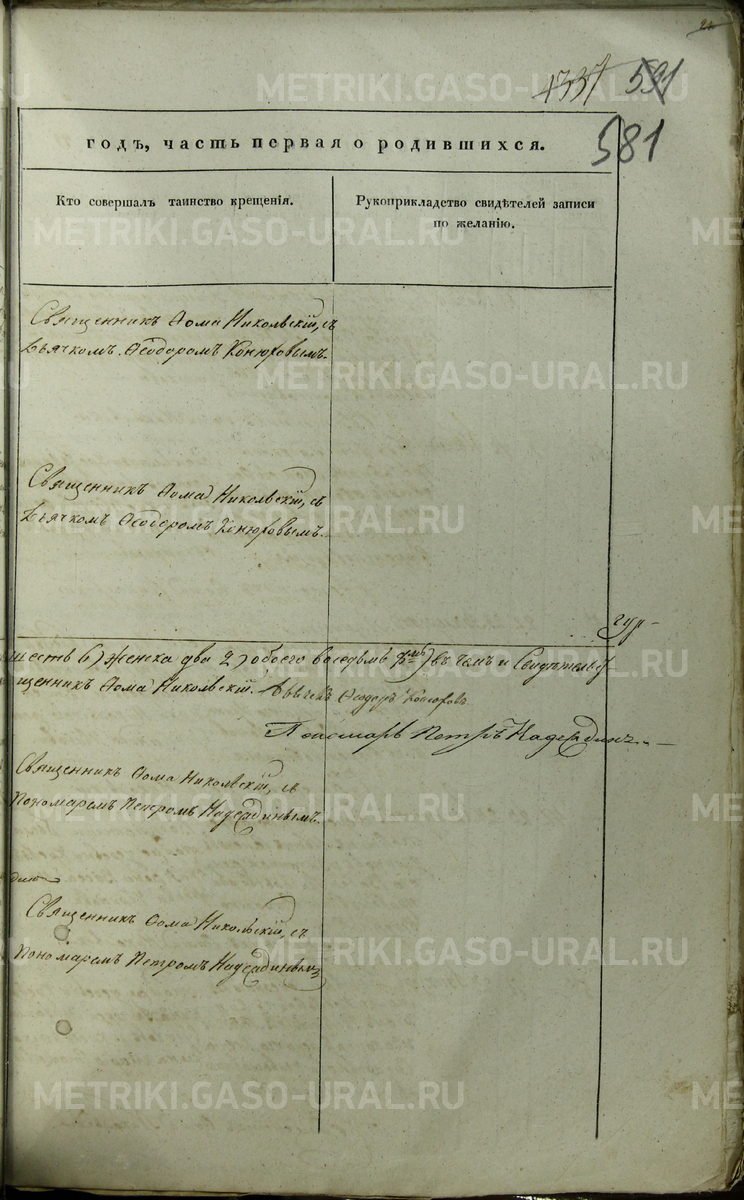 1337 591
581
годъ, часть первая о родившихся.
Кто совершалъ таинство крещенія.
Рукоприкладство свидѣтелей записи
по желанію.
Священникъ Ѳома Никольскій, съ
Дьячкомъ Ѳеодоромъ Конюховымъ.
Священникъ Ѳома Никольскій, съ
Дьячкомъ Ѳеодоромъ Конюховымъ.
шесть 6) женска два 2) обоего восемь въ чемъ и Свидѣтельст
щенникъ Ѳома Никольскій. Дьячекъ Ѳеодоръ Конюховъ
Пономарь Петръ Надеждинъ
Священникъ Ѳома Никольскій, съ
Пономаремъ Петромъ Надеждинымъ.
Священникъ Ѳома Никольскій, съ
Пономаремъ Петромъ Надеждинымъ
METRIKI.GASO-URAL.RU